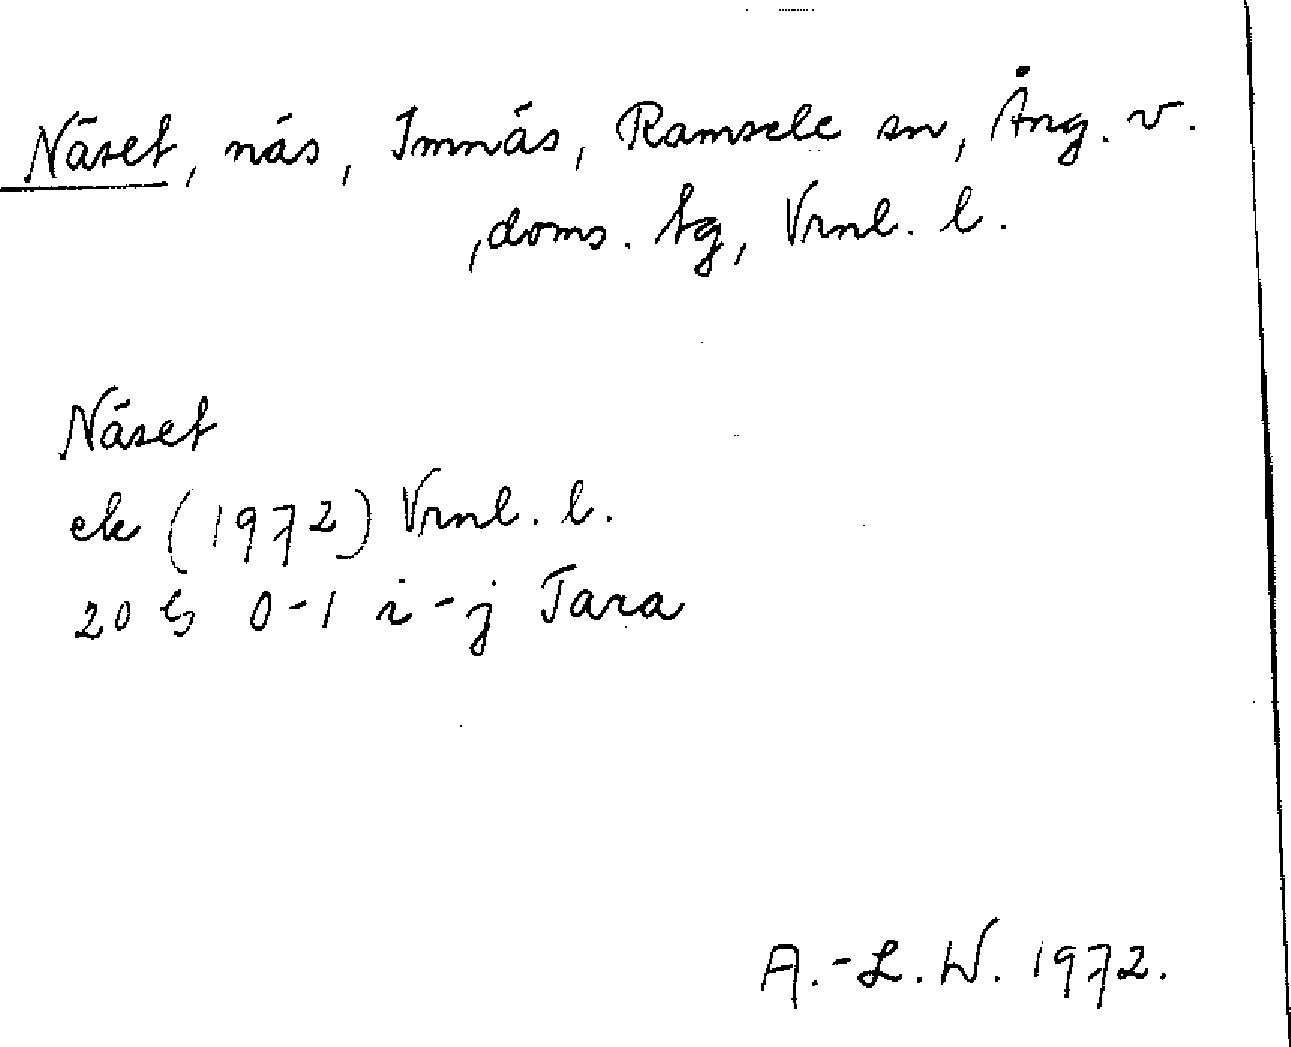 Näset, näs, Imnäs, Ramsele sn, Ång. v.
, doms. tg, Vrnl. l.
Näset
ek (1972) Vrnl. l.
20 G 0-1 i-j Tara
A.-L. W. 1972.